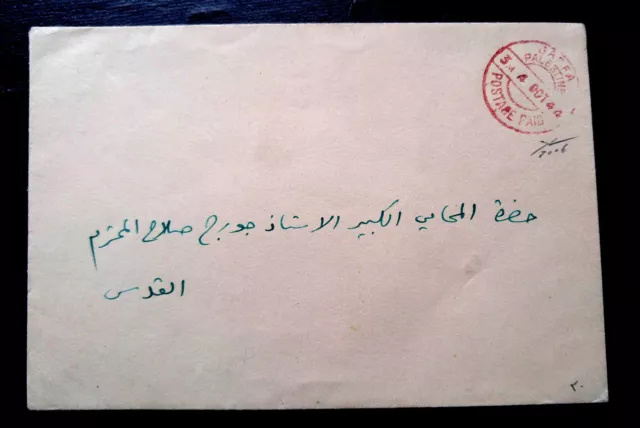 JAFFA
PALESTINE
4 OCT 44
POSTAGE PAID
حضرة المحامي الكبير الاستاذ جورج صلاح المحترم
القدس
٢٠